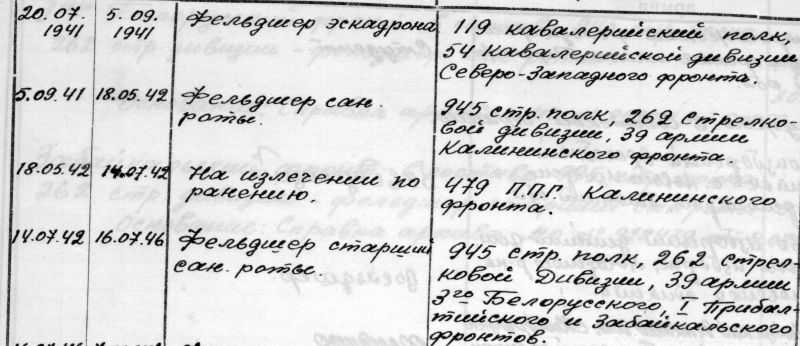 20.07. 1941 5.09. 1941 Фельдшер эскадрона 119 кавалерийский полк,
54 кавалерийской дивизии
Северо-Западного фронта.
5.09.41 18.05.42 Фельдшер сан. 945 стр. полк, 262 стрелко-
роты. вой дивизии, 39 армии
Калининского фронта.
18.05.42 14.07.42 На излечении по 479 П.П.Г. Калининского
ранению. фронта.
14.07.42 16.07.46 Фельдшер старший 945 стр. полк, 262 стрел-
сан. роты. ковой Дивизии, 39 армии
3го Белорусского, I Прибал-
тийского и Забайкальского
фронтов.